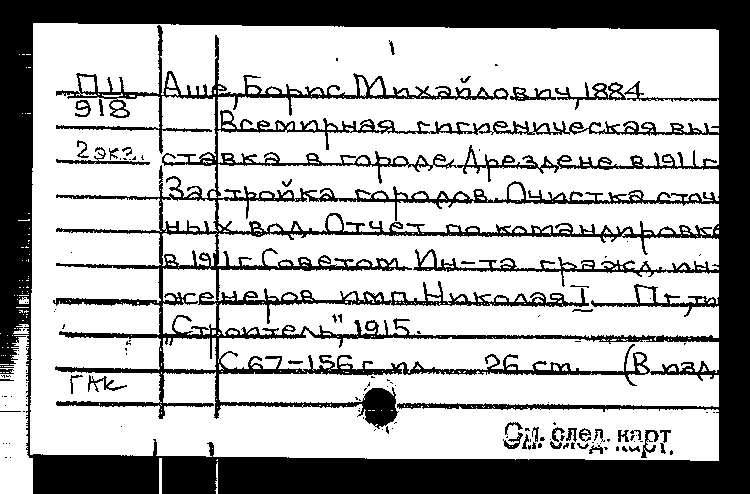 1
ПЦ Аше, Борис Михайлович, 1884
918
Всемирная гигиеническая вы-
2 экз. ставка в городе Дрездене в 1911 г
Застройка городов. Очистка сточ
ных вод. Отчет по командировке
в 1911 г Советом Ин-та гражд. ин-
женеров имп. Николая I. Пг, ти
"Строитель", 1915.
С 67-156 г ил. 26 cm. (В изд.
ГАК
См. след. карт.